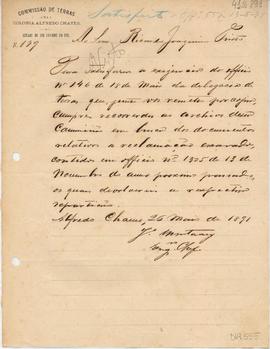 COMMISSÃO DE TERRAS
NA
COLONIA ALFREDO CHAVES
ESTADO DO RIO GRANDE DO SUL
N. 139
Ao Snr. Ricardo Joaquim
Para satisfazer a exigencia do officio
Nº 146 de 18 de Maio da delegacia de
terras que junto vos remetto por copia,
cumpre recorrerdes ao archivo dessa
Commissão em busca dos documentos
relativos a reclamação exarada,
contidos em officio nº 1825 de 13 de
Novembro do anno proximo passado,
os quaes devolvereis a respectiva
repartição.
Alfredo Chaves, 26 Maio de 1891
J. Montaury
Engº Chefe